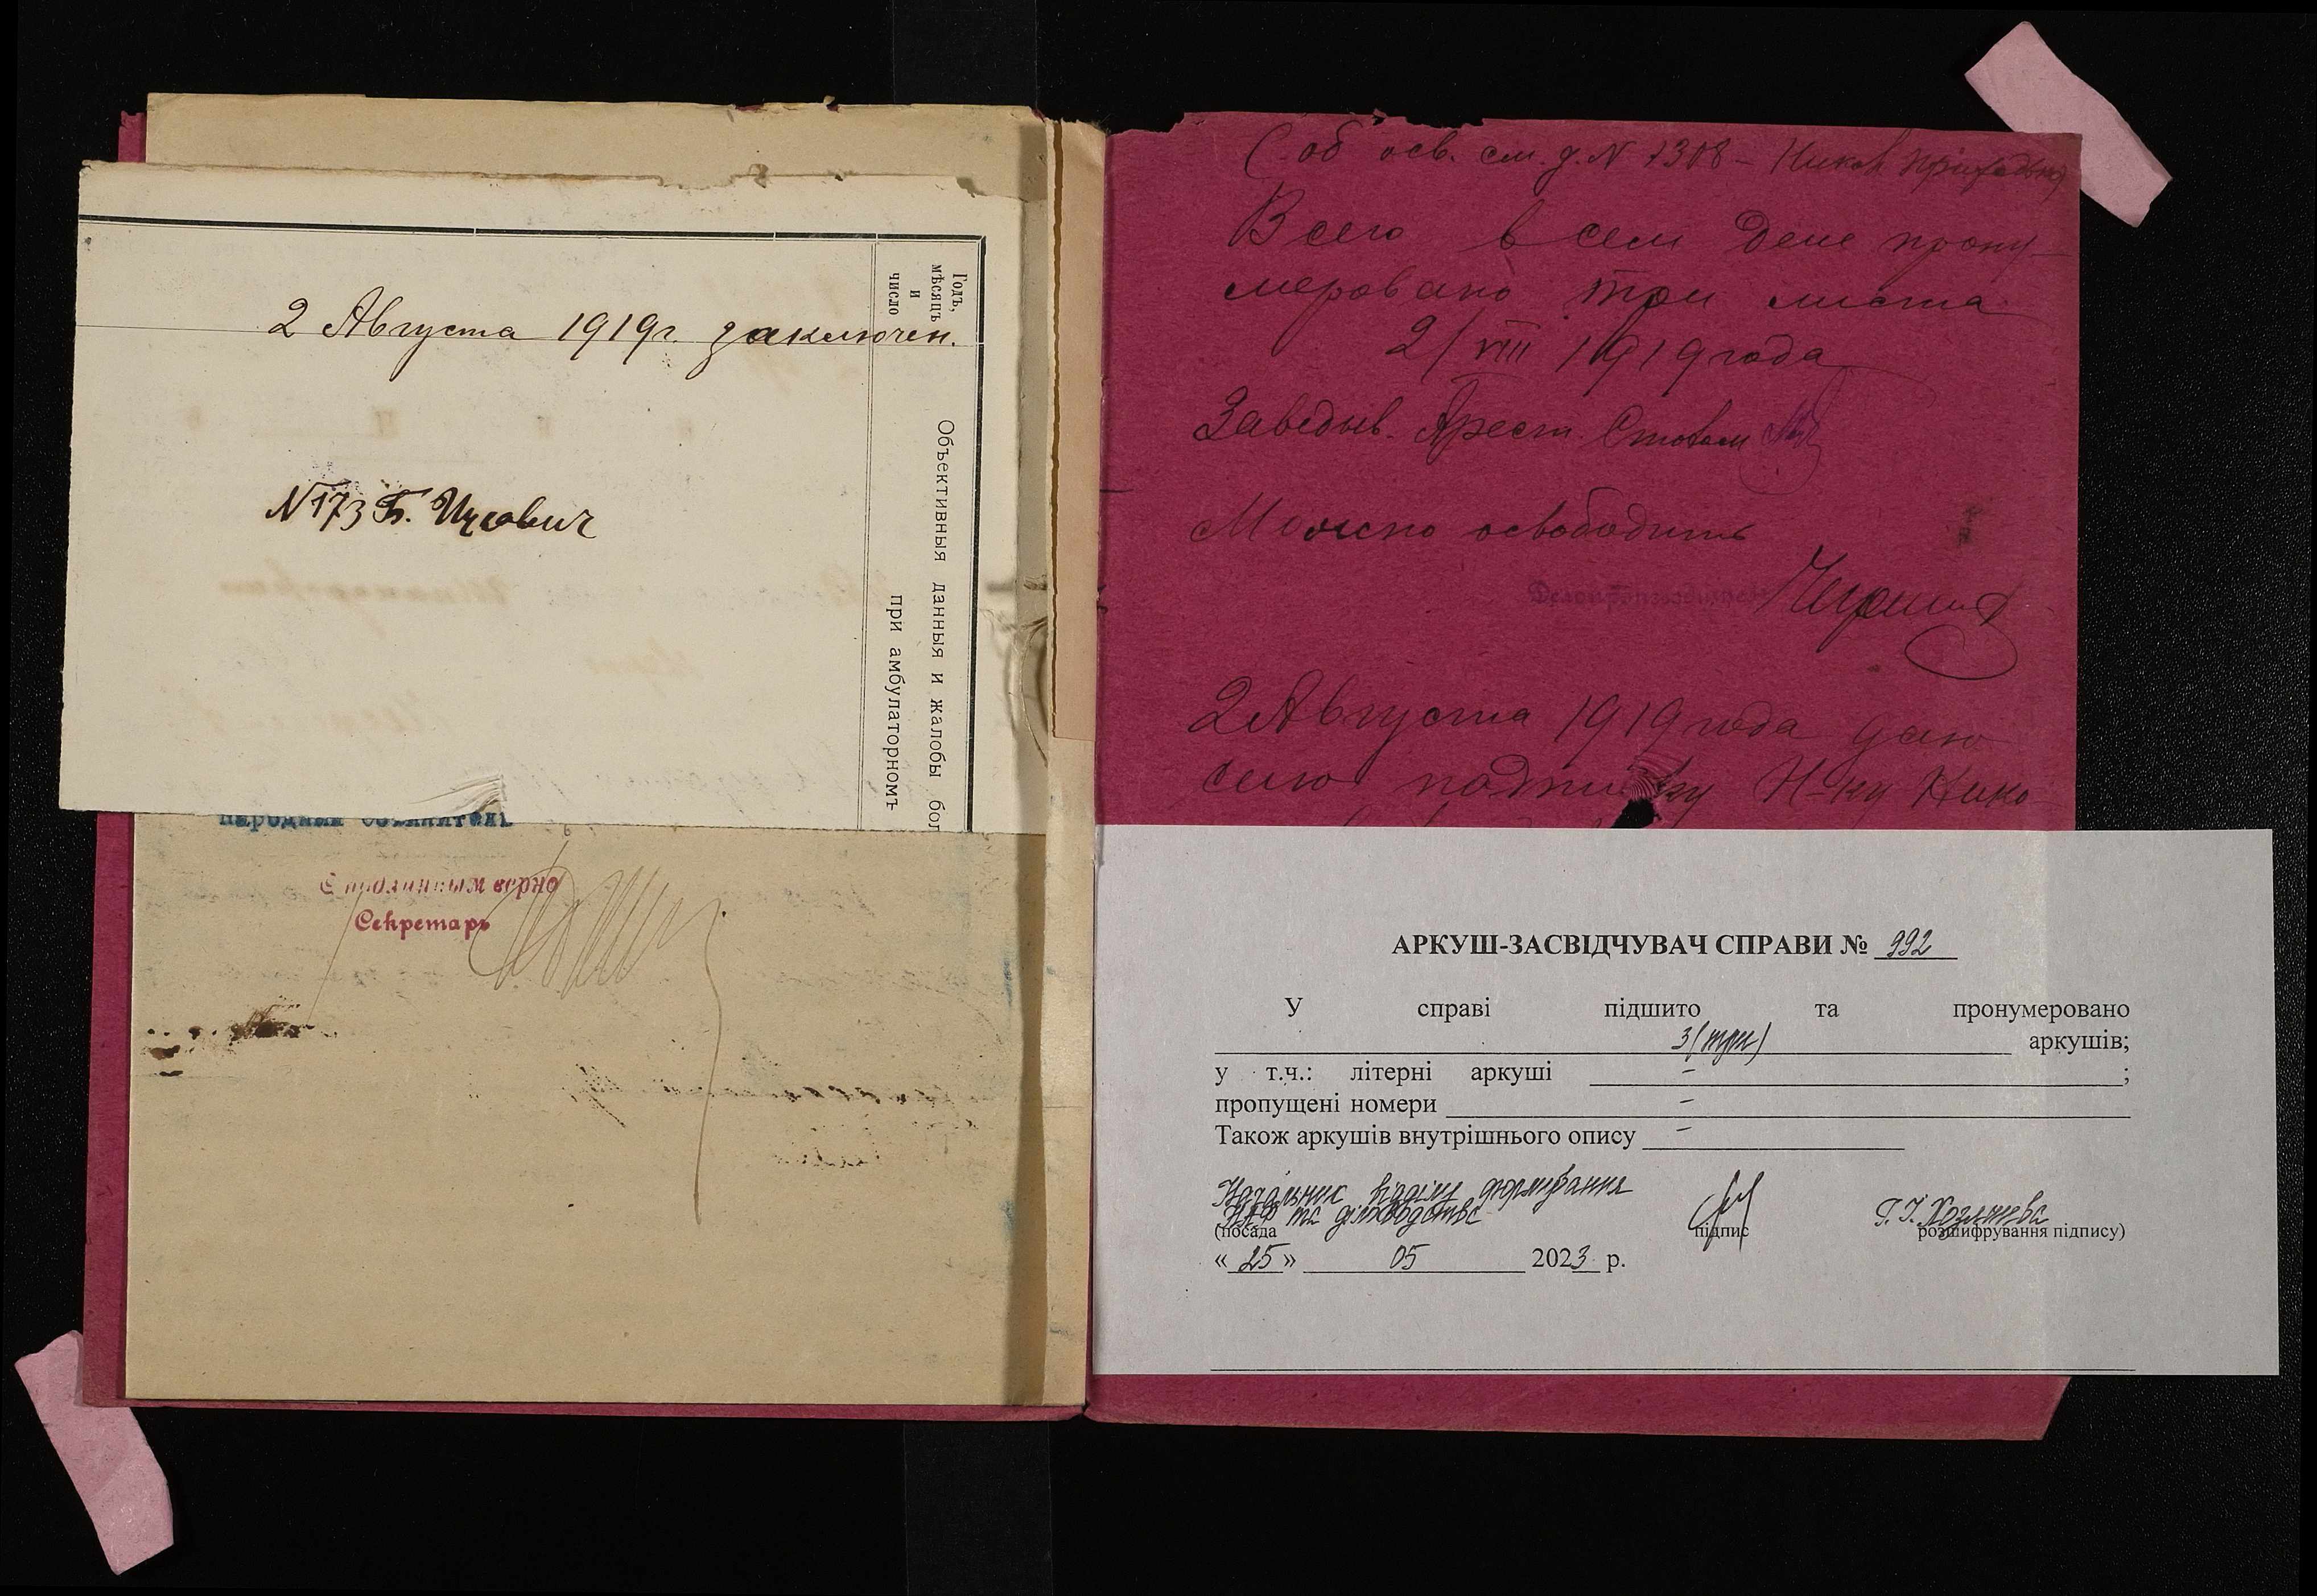 Годъ,
мѣсяцъ
и
число
Объективныя данныя и жалобы бол
при амбулаторномъ
2 Августа 1919г. заключен.
N173 Б. Ицкович
Народный
С подлинным верно
Секретарь
(об осв. см. д. N 1308 -
Всего в сем деле прону-
меровано три листа
2/VIII 1919 года
Заведыв. Арест. Столом
Можно освободить
Делопроизводитель
2 Августа 1919 года даю
сию подписку Н-ку Нико
АРКУШ-ЗАСВІДЧУВАЧ СПРАВИ № 992
У справі підшито та пронумеровано
3 (три) аркушів;
у т.ч.: літерні аркуші - ;
пропущені номери -
Також аркушів внутрішнього опису -
Начальник відділу формування
НАФ та діловодства
(посада підпис розшифрування підпису)
« 25 » 05 2023 р.